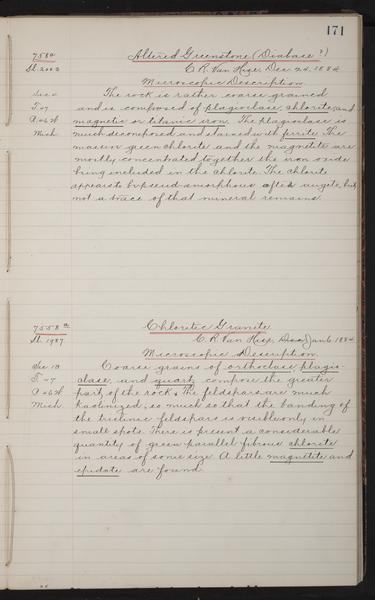 171
7580 Altered Greenstone (Diabase?)
Sl. 2002 C. R. Van Hise, Dec 1884
Microscopic Description
The rock is rather coarse grained
T. 47 and is composed of plagioclase chlorite and
R. 46 W magnetic or titanic iron. The plagioclase is
Mich. much decomposed and stained with ferrite. The
massive green chlorite and the magnetite are
mostly concentrated together the iron oxide
being included in the chlorite. The chlorite
appears to be pseudamorphous after augite, but
not a trace of that mineral remains.
7558 a Chloritic Granite
Sl. 1987 C. R. Van Hise, Jan 6 1884
Microscopic Description
Sec 13 Coarse grains of orthoclase plagio-
T. 47 clase, and quartz compose the greater
R 46 W part of the rock. The feldspars are much
Mich. kaolinized, so much so that the banding of
the triclinic feldspars is visible only in
small spots. There is present a considerable
quantity of green parallel fibrous chlorite
in areas of some size. A little magnetite and
epidote are found.